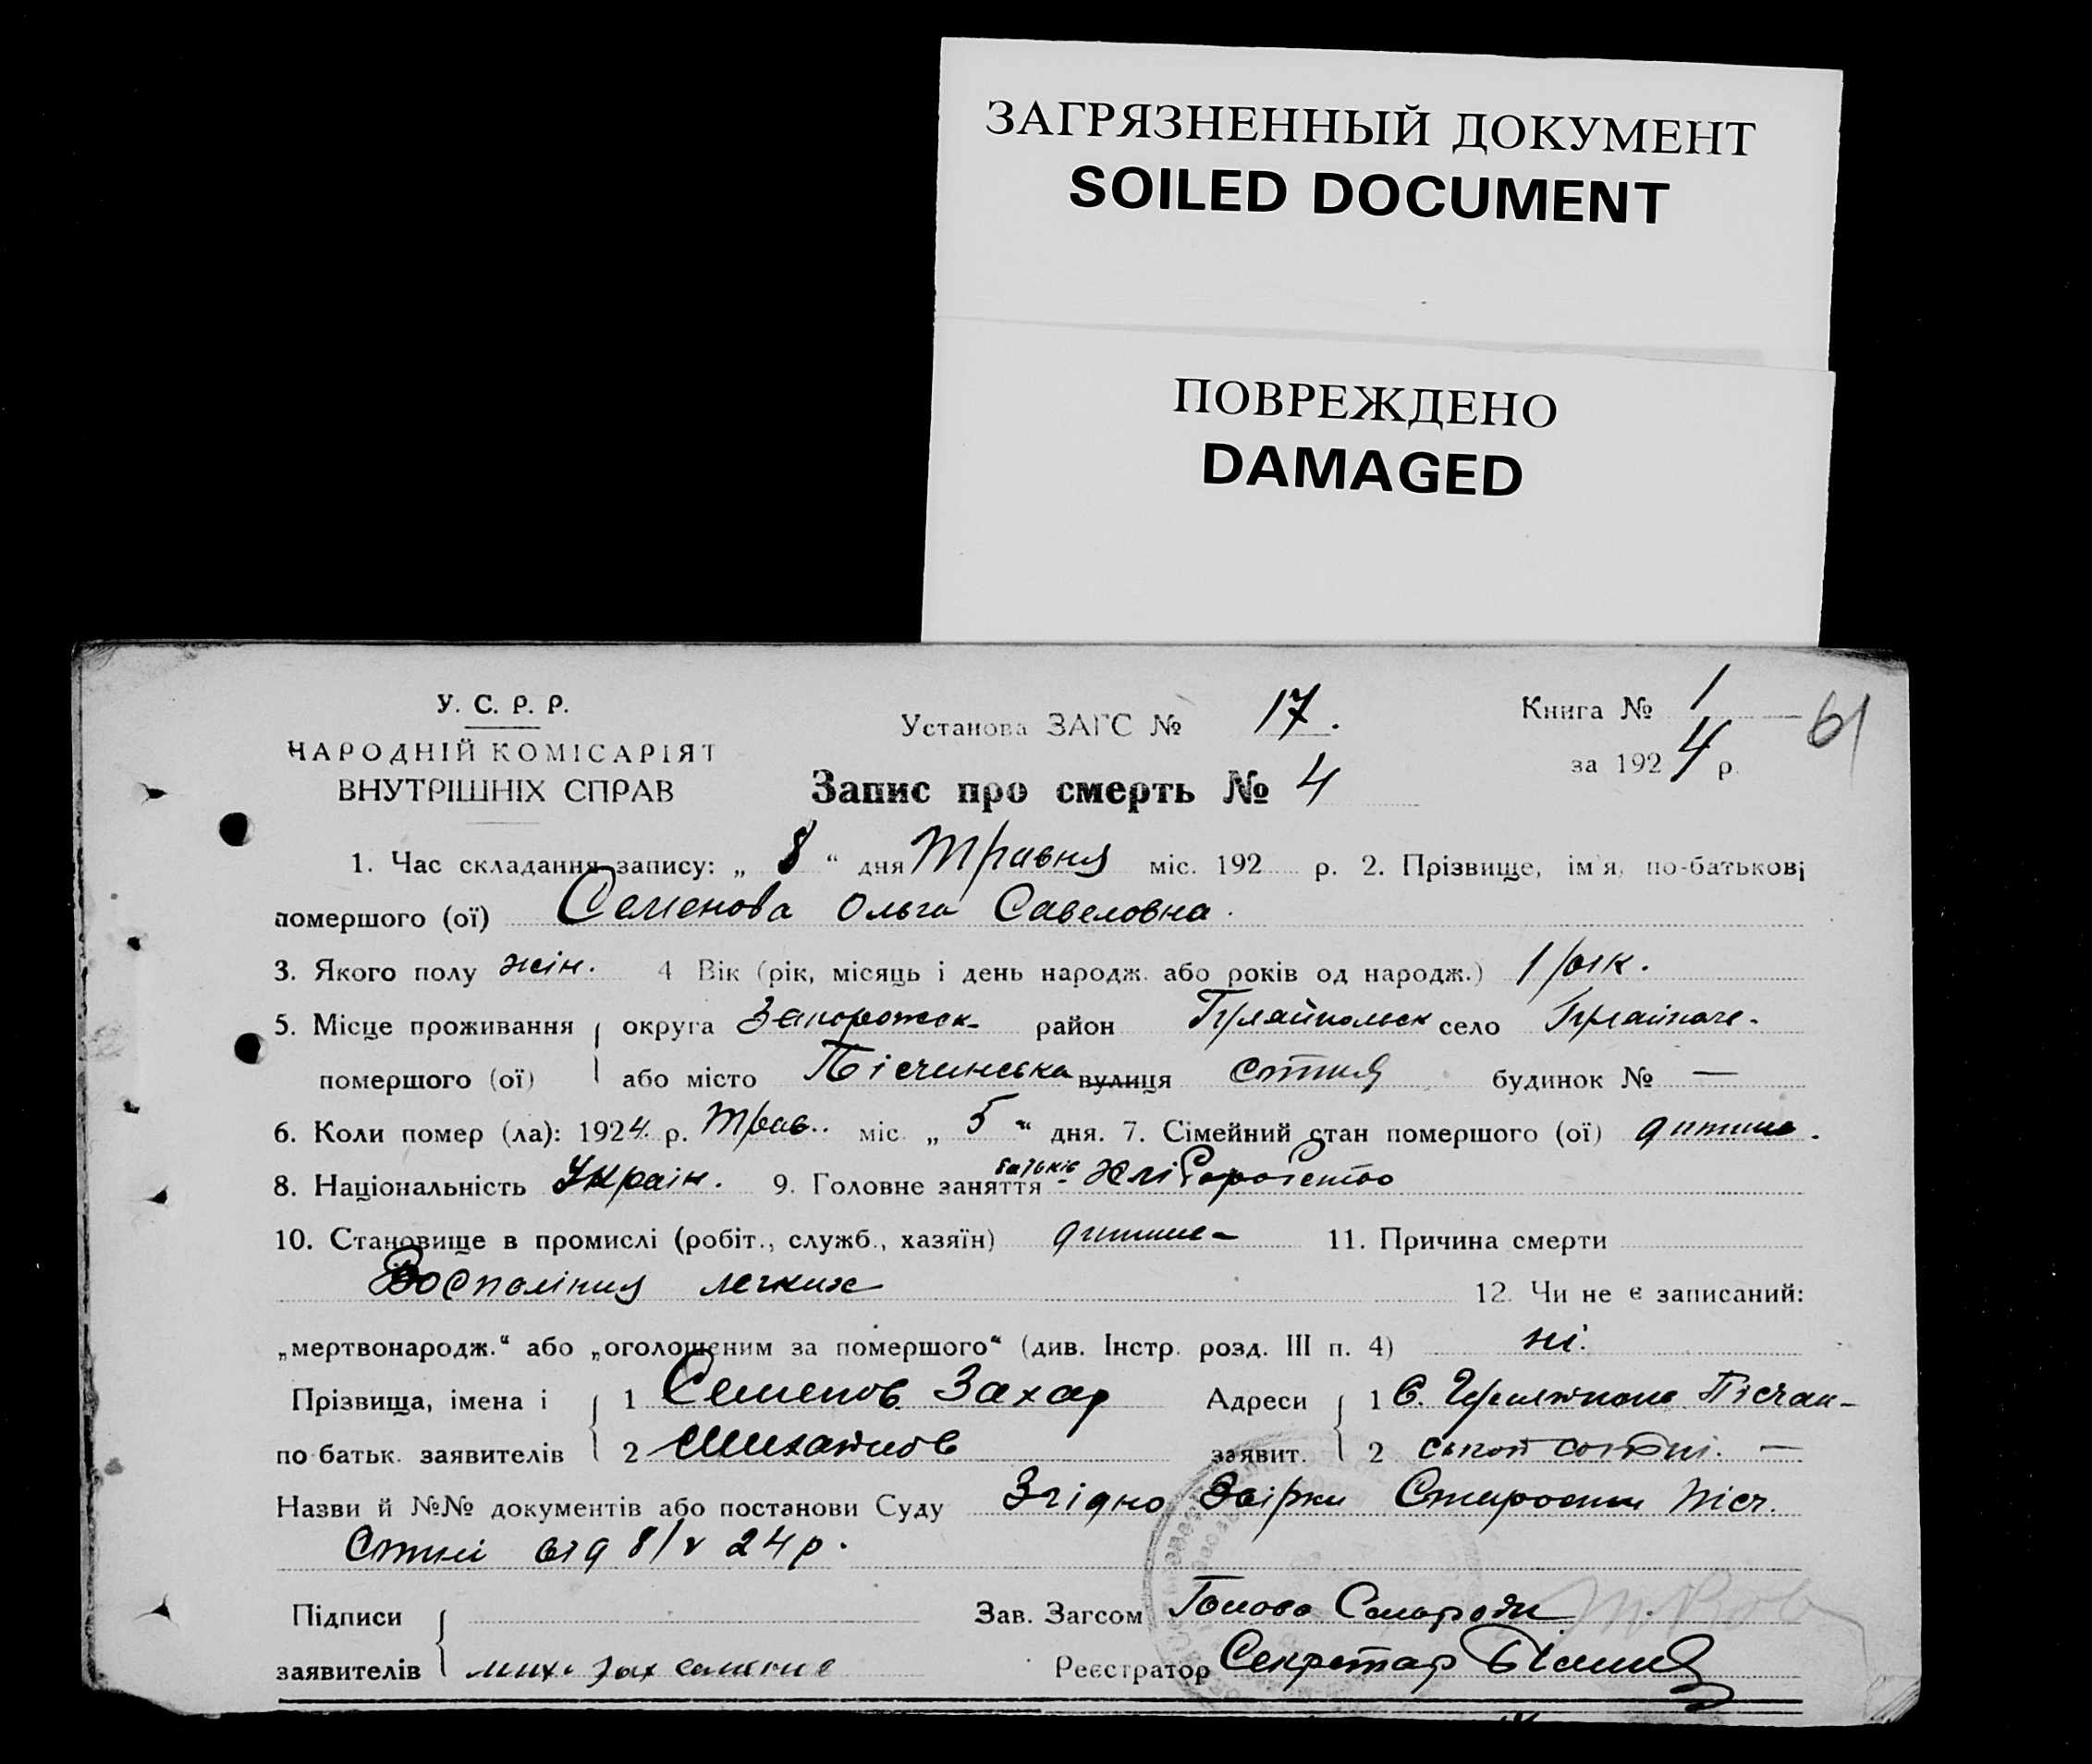 ЗАГРЯЗНЕННЫЙ ДОКУМЕНТ
SOILED DOCUMENT
ПОВРЕЖДЕНО
DAMAGED
У. С. Р. Р.
НАРОДНІЙ КОМІСАРІЯТ
ВНУТРІШНІХ СПРАВ
Установа ЗАГС № 17.
Книга № 1
61
за 1924 р.
Запис про смерть № 4
1. Час складання запису: „ 8 “ дня Травня міс. 192 р. 2. Прізвище, ім'я, по-батькові
помершого (ої) Семенова Ольга Савеловна.
3. Якого полу жін. 4 Вік (рік, місяць і день народж. або років од народж.) 1 рік.
5. Місце проживання округа Запорожск. район Гуляйпольск село Гуляйполе.
помершого (ої) або місто Пісчинська вулиця сотня будинок № —
6. Коли помер (ла): 1924. р. Трав.. міс. „ 5 “ дня. 7. Сімейний стан помершого (ої) дитина.
8. Національність Україн. 9. Головне заняття батьків - хліборобство
10. Становище в промислі (робіт., служб., хазяїн) дитина - 11. Причина смерти
Воспаліния легких 12. Чи не є записаний:
„мертвонародж.“ або „оголошеним за помершого“ (див. Інстр. розд. III п. 4) ні.
Прізвища, імена і 1 Семенов Захар Адреси 1 С. Гуляйполе Пісчан-
по батьк. заявителів 2 Михайлов заявит. 2 ської сотні. —
Назви й №№ документів або постанови Суду Згідно Старости Пісч.
Сотні від 8/V 24 р.
Підписи Зав. Загсом Голова
заявителів Реєстратор Секретар